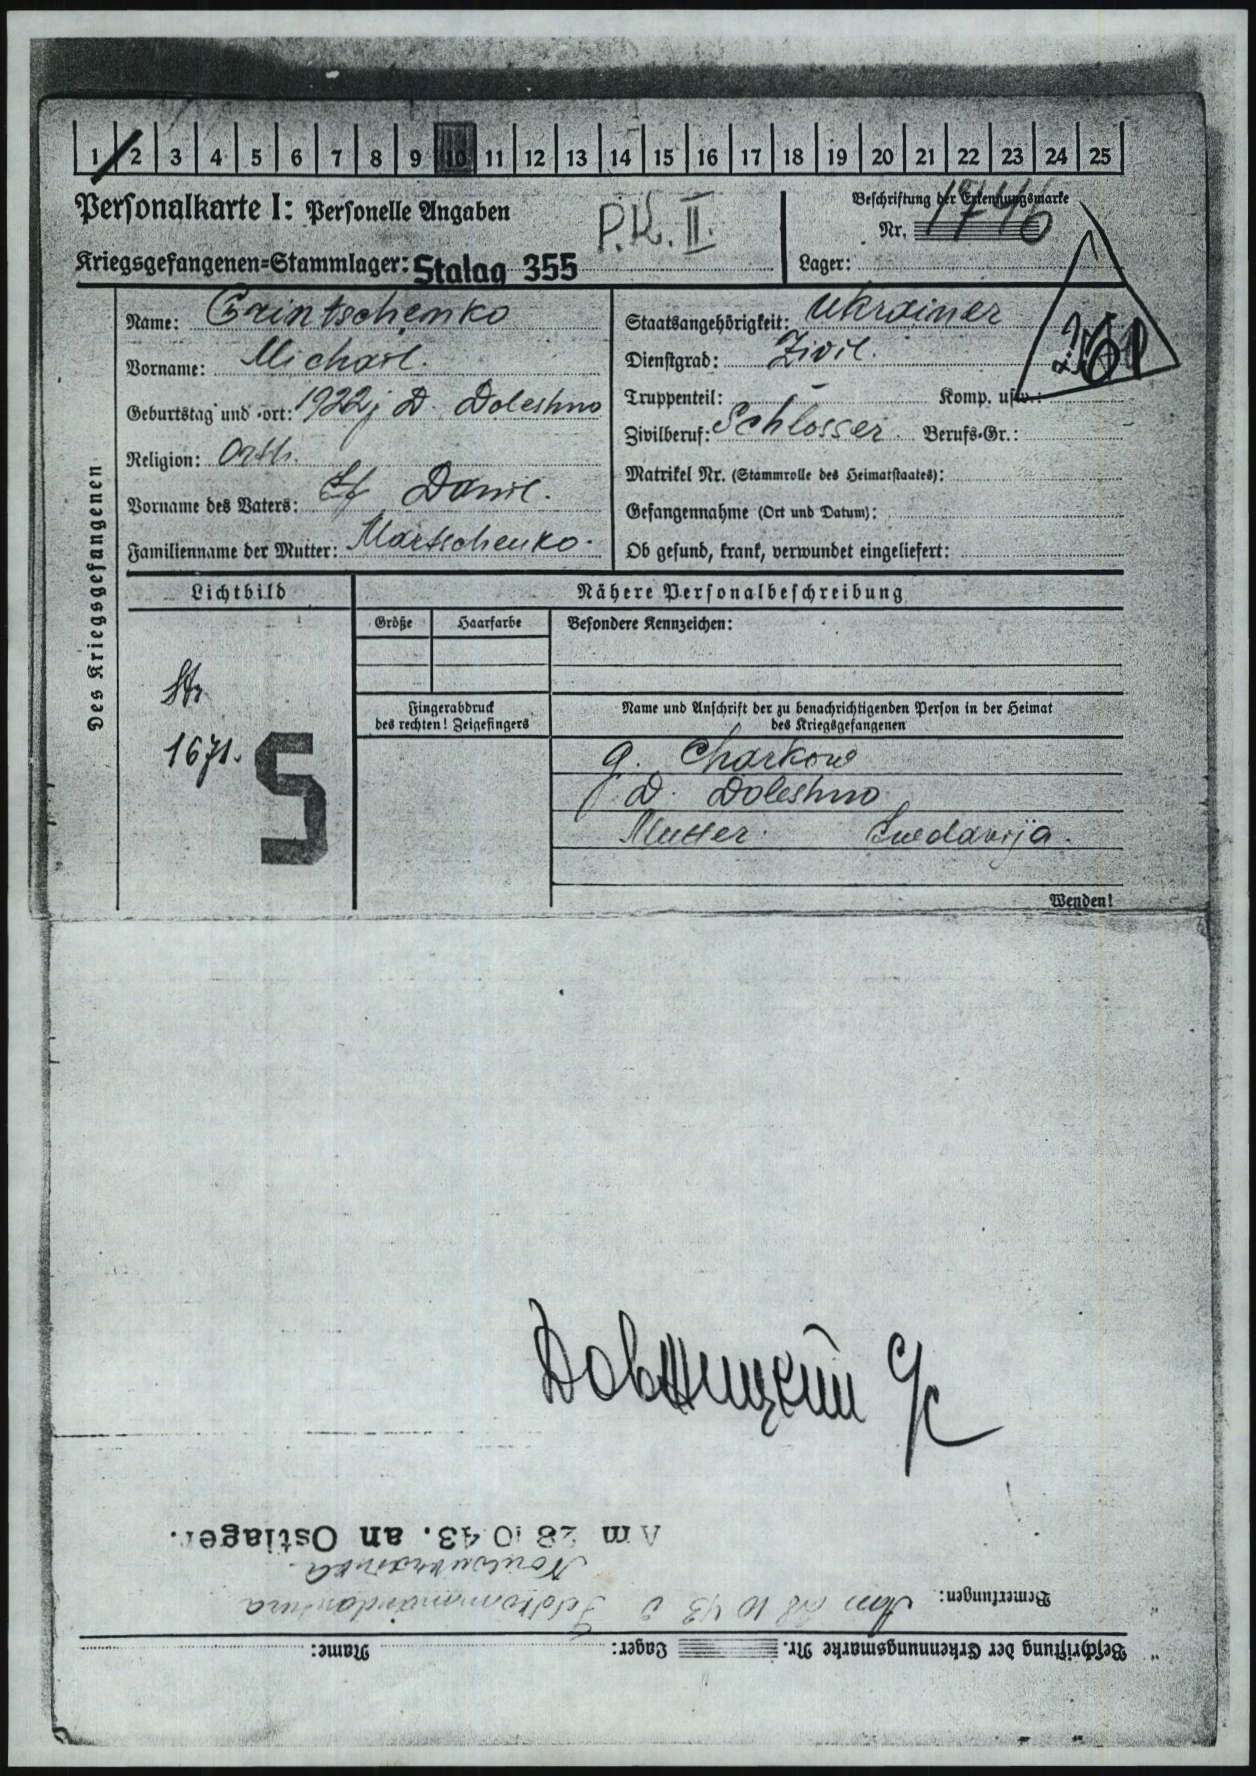 1 2 3 4 5 6 7 8 9 10 11 12 13 14 15 16 17 18 19 20 21 22 23 24 25
Personalkarte I: Personelle Angaben
P.K. II.
Beschriftung der Erkennungsmarke
Nr. 1746
Kriegsgefangenen-Stammlager: Stalag 355
Lager:
Des Kriegsgefangenen
Name: Grintschenko
Vorname: Michail.
Geburtstag und -ort: 1922 j D. Doleshno
Religion: Orth.
Vorname des Vaters: Danil.
Familienname der Mutter: Martschenko.
Staatsangehörigkeit: Ukrainer
Dienstgrad: Zivil.
Truppenteil: - Komp. usw.:
Zivilberuf: Schlosser. Berufs-Gr.:
Matrikel Nr. (Stammrolle des Heimatstaates):
Gefangennahme (Ort und Datum):
Ob gesund, krank, verwundet eingeliefert:
Lichtbild
1671.
S
Nähere Personalbeschreibung
Größe Haarfarbe Besondere Kennzeichen:
Fingerabdruck
des rechten! Zeigefingers
Name und Anschrift der zu benachrichtigenden Person in der Heimat
des Kriegsgefangenen
g. Charkow
D. Doleshno
Mutter.
Wenden!
Beschriftung der Erkennungsmarke Nr. Lager: Name:
Bemerkungen: Am 28 10 43 Feldkommandantura
Am 28 10 43. an Ostlager.